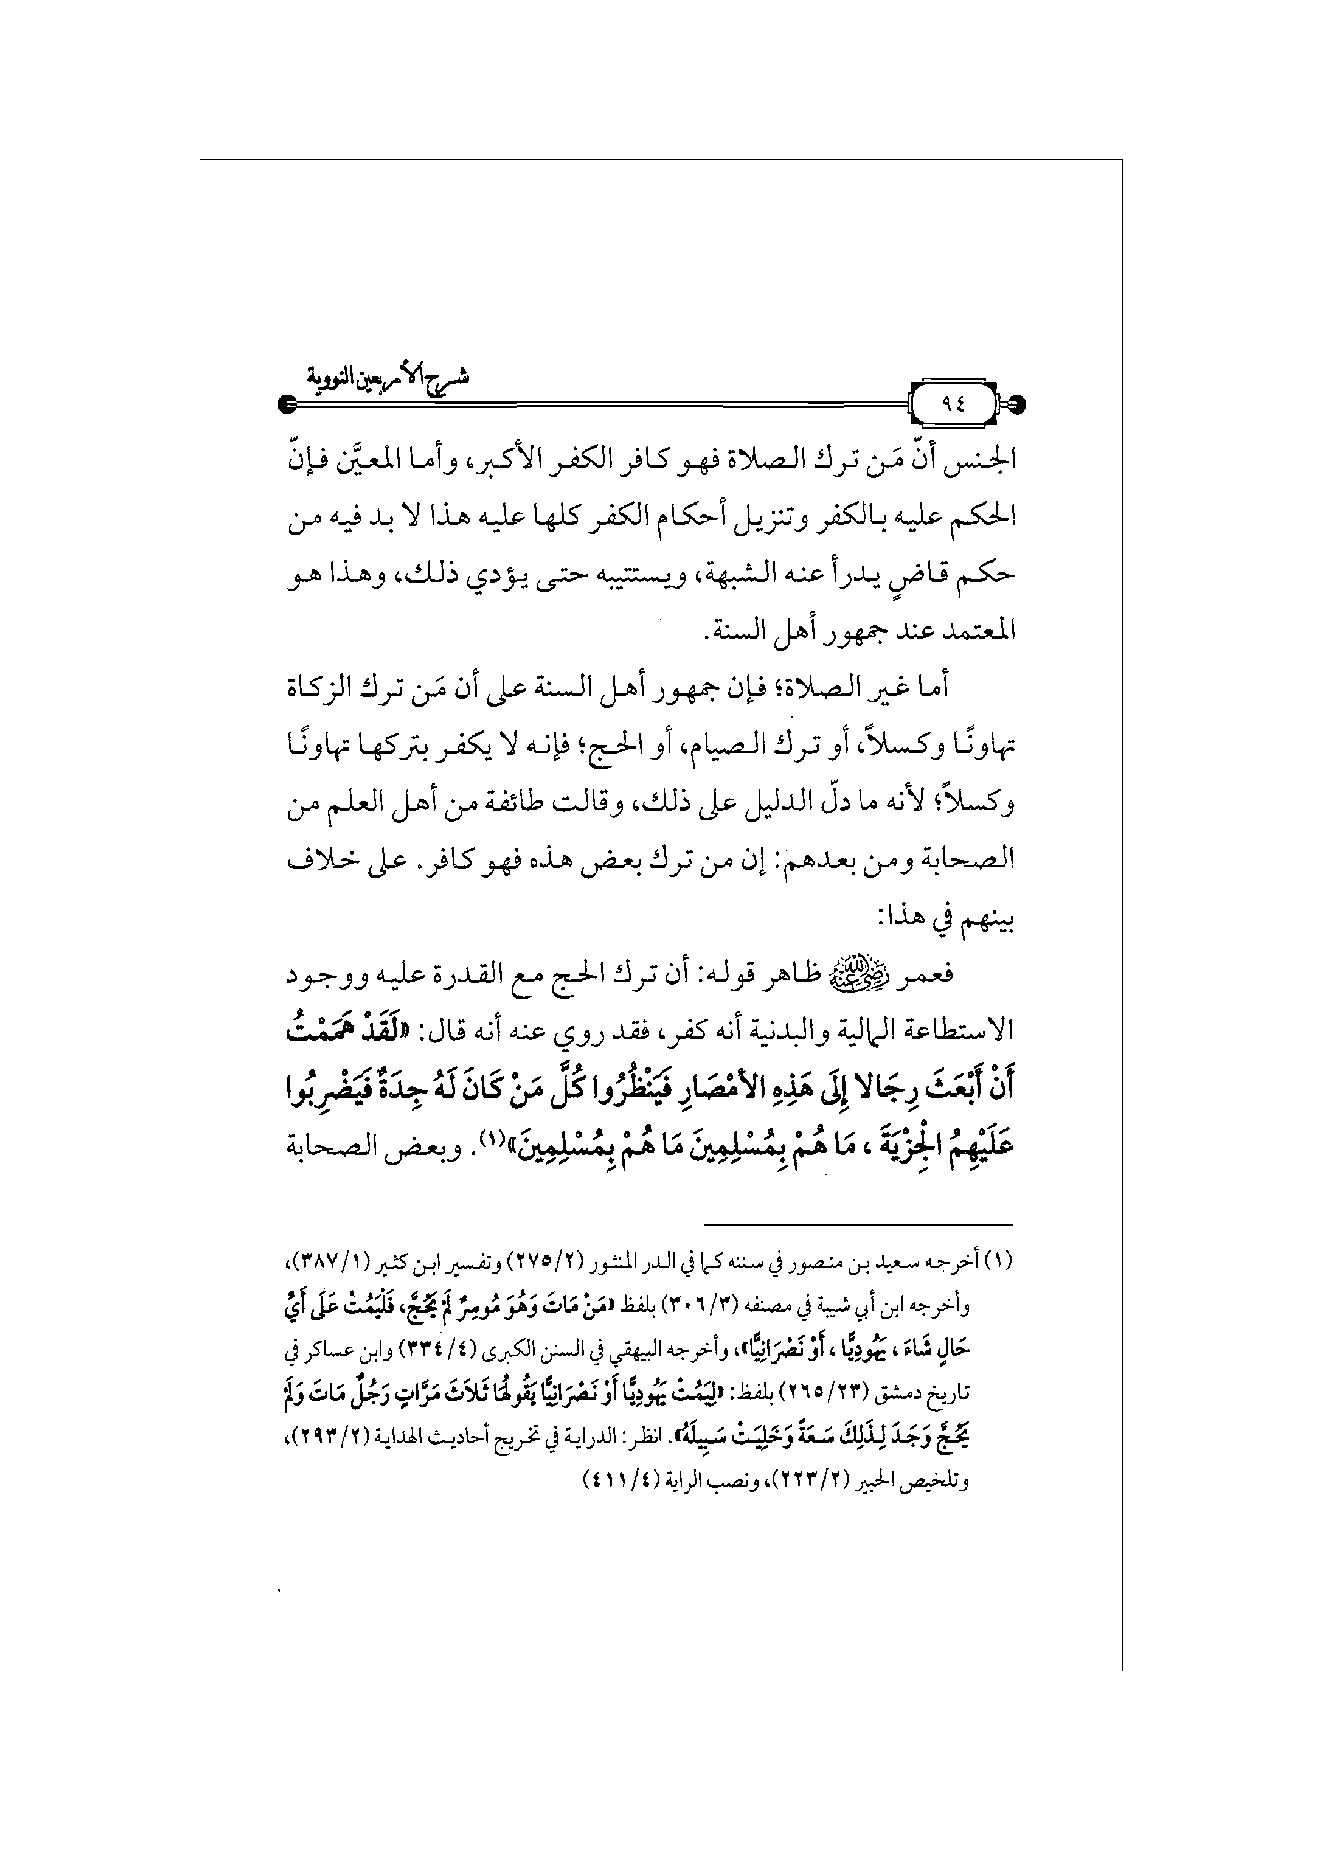 شرح الأربعين النووية
٩٤
الجنس أنّ مَن ترك الصلاة فهو كافر الكفر الأكبر، وأما المعيَّن فإنّ
الحكم عليه بالكفر وتنزيل أحكام الكفر كلها عليه هذا لا بد فيه من
حكم قاضٍ يدرأ عنه الشبهة، ويستتيبه حتى يؤدي ذلك، وهذا هو
المعتمد عند جمهور أهل السنة.
أما غير الصلاة؛ فإن جمهور أهل السنة على أن مَن ترك الزكاة
تهاونًا وكسلاً، أو ترك الصيام، أو الحج؛ فإنه لا يكفر بتركها تهاونًا
وكسلاً؛ لأنه ما دلّ الدليل على ذلك، وقالت طائفة من أهل العلم من
الصحابة ومن بعدهم: إن من ترك بعض هذه فهو كافر. على خلاف
بينهم في هذا:
فعمر رضي الله عنه ظاهر قوله: أن ترك الحج مع القدرة عليه ووجود
الاستطاعة المالية والبدنية أنه كفر، فقد روي عنه أنه قال: «لَقَدْ هَمَمْتُ
أَنْ أَبْعَثَ رِجَالا إِلَى هَذِهِ الأَمْصَارِ فَيَنْظُرُوا كُلَّ مَنْ كَانَ لَهُ جِدَةٌ فَيَضْرِبُوا
عَلَيْهِمُ الْجِزْيَةَ ، مَا هُمْ بِمُسْلِمِينَ مَا هُمْ بِمُسْلِمِينَ»(١). وبعض الصحابة
(١) أخرجه سعيد بن منصور في سننه كما في الدر المنثور (٢٧٥/٢) وتفسير ابن كثير (٣٨٧/١)،
وأخرجه ابن أبي شيبة في مصنفه (٣٠٦/٣) بلفظ «مَنْ مَاتَ وَهُوَ مُوسِرٌ لَمْ يَحُجَّ، فَلْيَمُتْ عَلَى أَيِّ
حَالٍ شَاءَ ، يَهُودِيًّا ، أَوْ نَصْرَانِيًّا»، وأخرجه البيهقي في السنن الكبرى (٣٣٤/٤) وابن عساكر في
تاريخ دمشق (٢٦٥/٢٣) بلفظ: «لِيَمُتْ يَهُودِيًّا أَوْ نَصْرَانِيًّا يَقُولُهَا ثَلَاثَ مَرَّاتٍ رَجُلٌ مَاتَ وَلَمْ
يَحُجَّ وَجَدَ لِذَلِكَ سَعَةً وَخَلِيَتْ سَبِيلَهُ». انظر: الدراية في تخريج أحاديث الهداية (٢٩٣/٢)،
وتلخيص الحبير (٢٢٣/٢)، ونصب الراية (٤١١/٤)